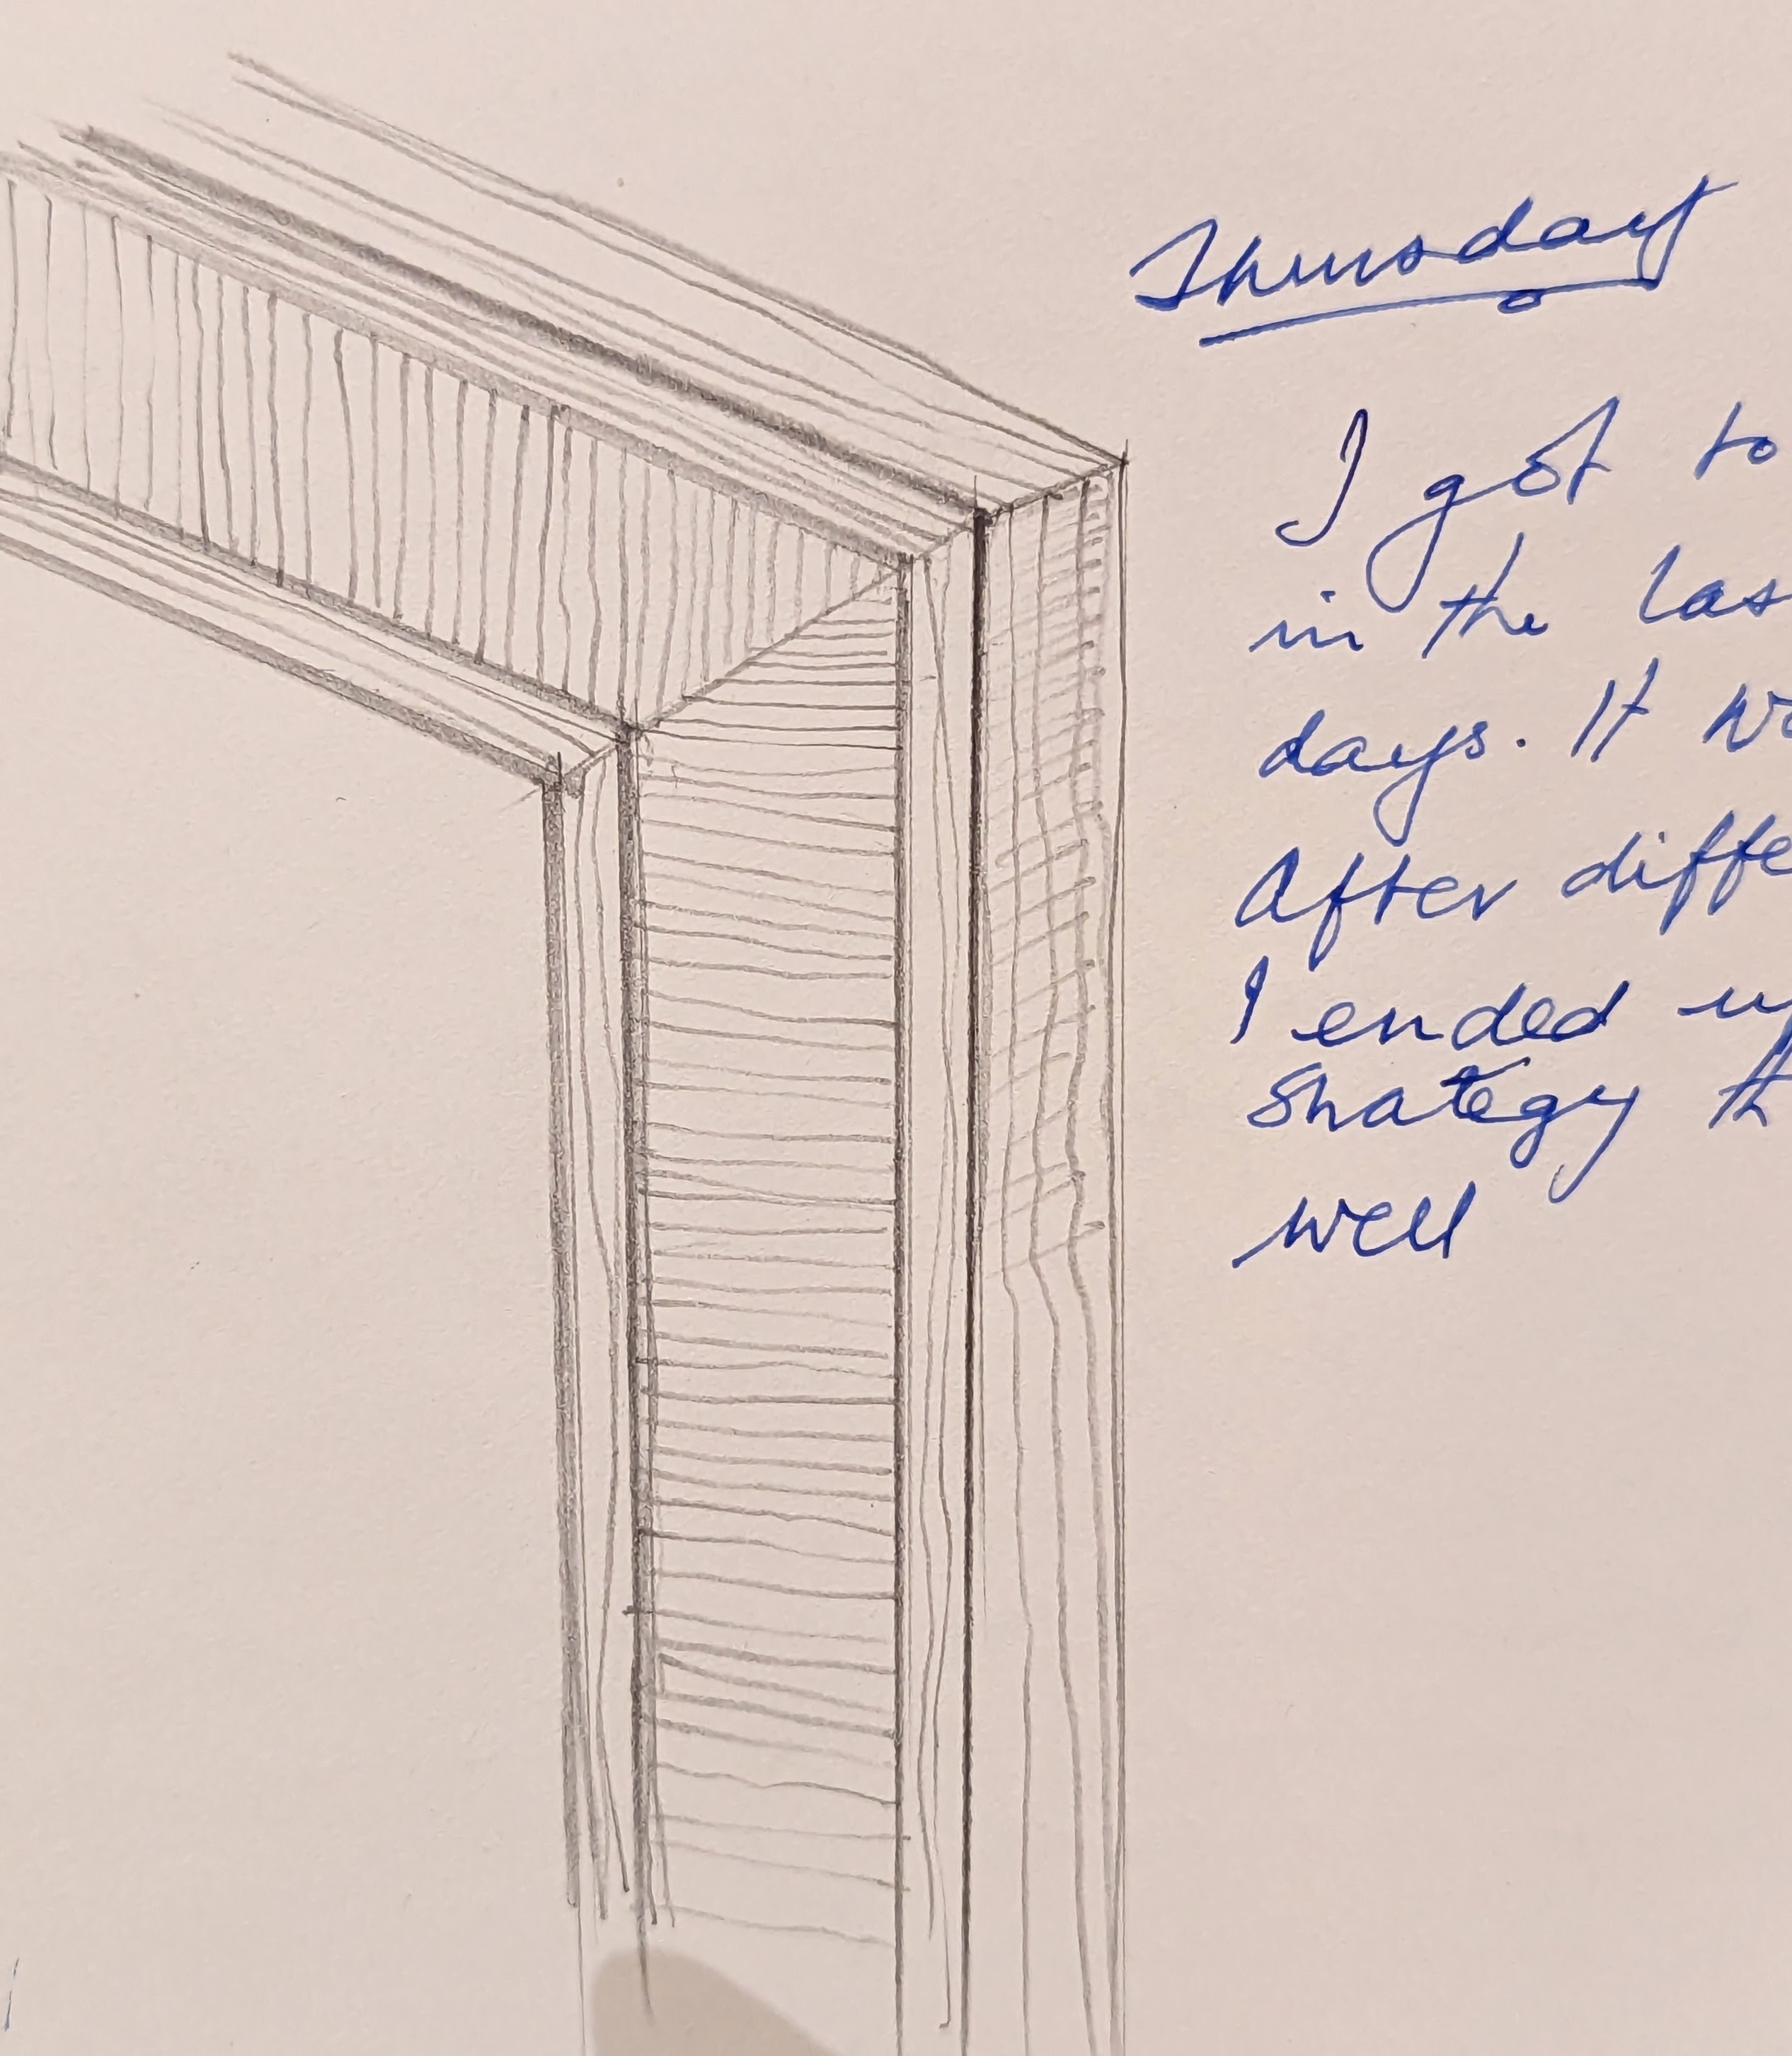 Thursday
I got to
in the las
days. It w
After diffe
I ended u
Strategy th
well